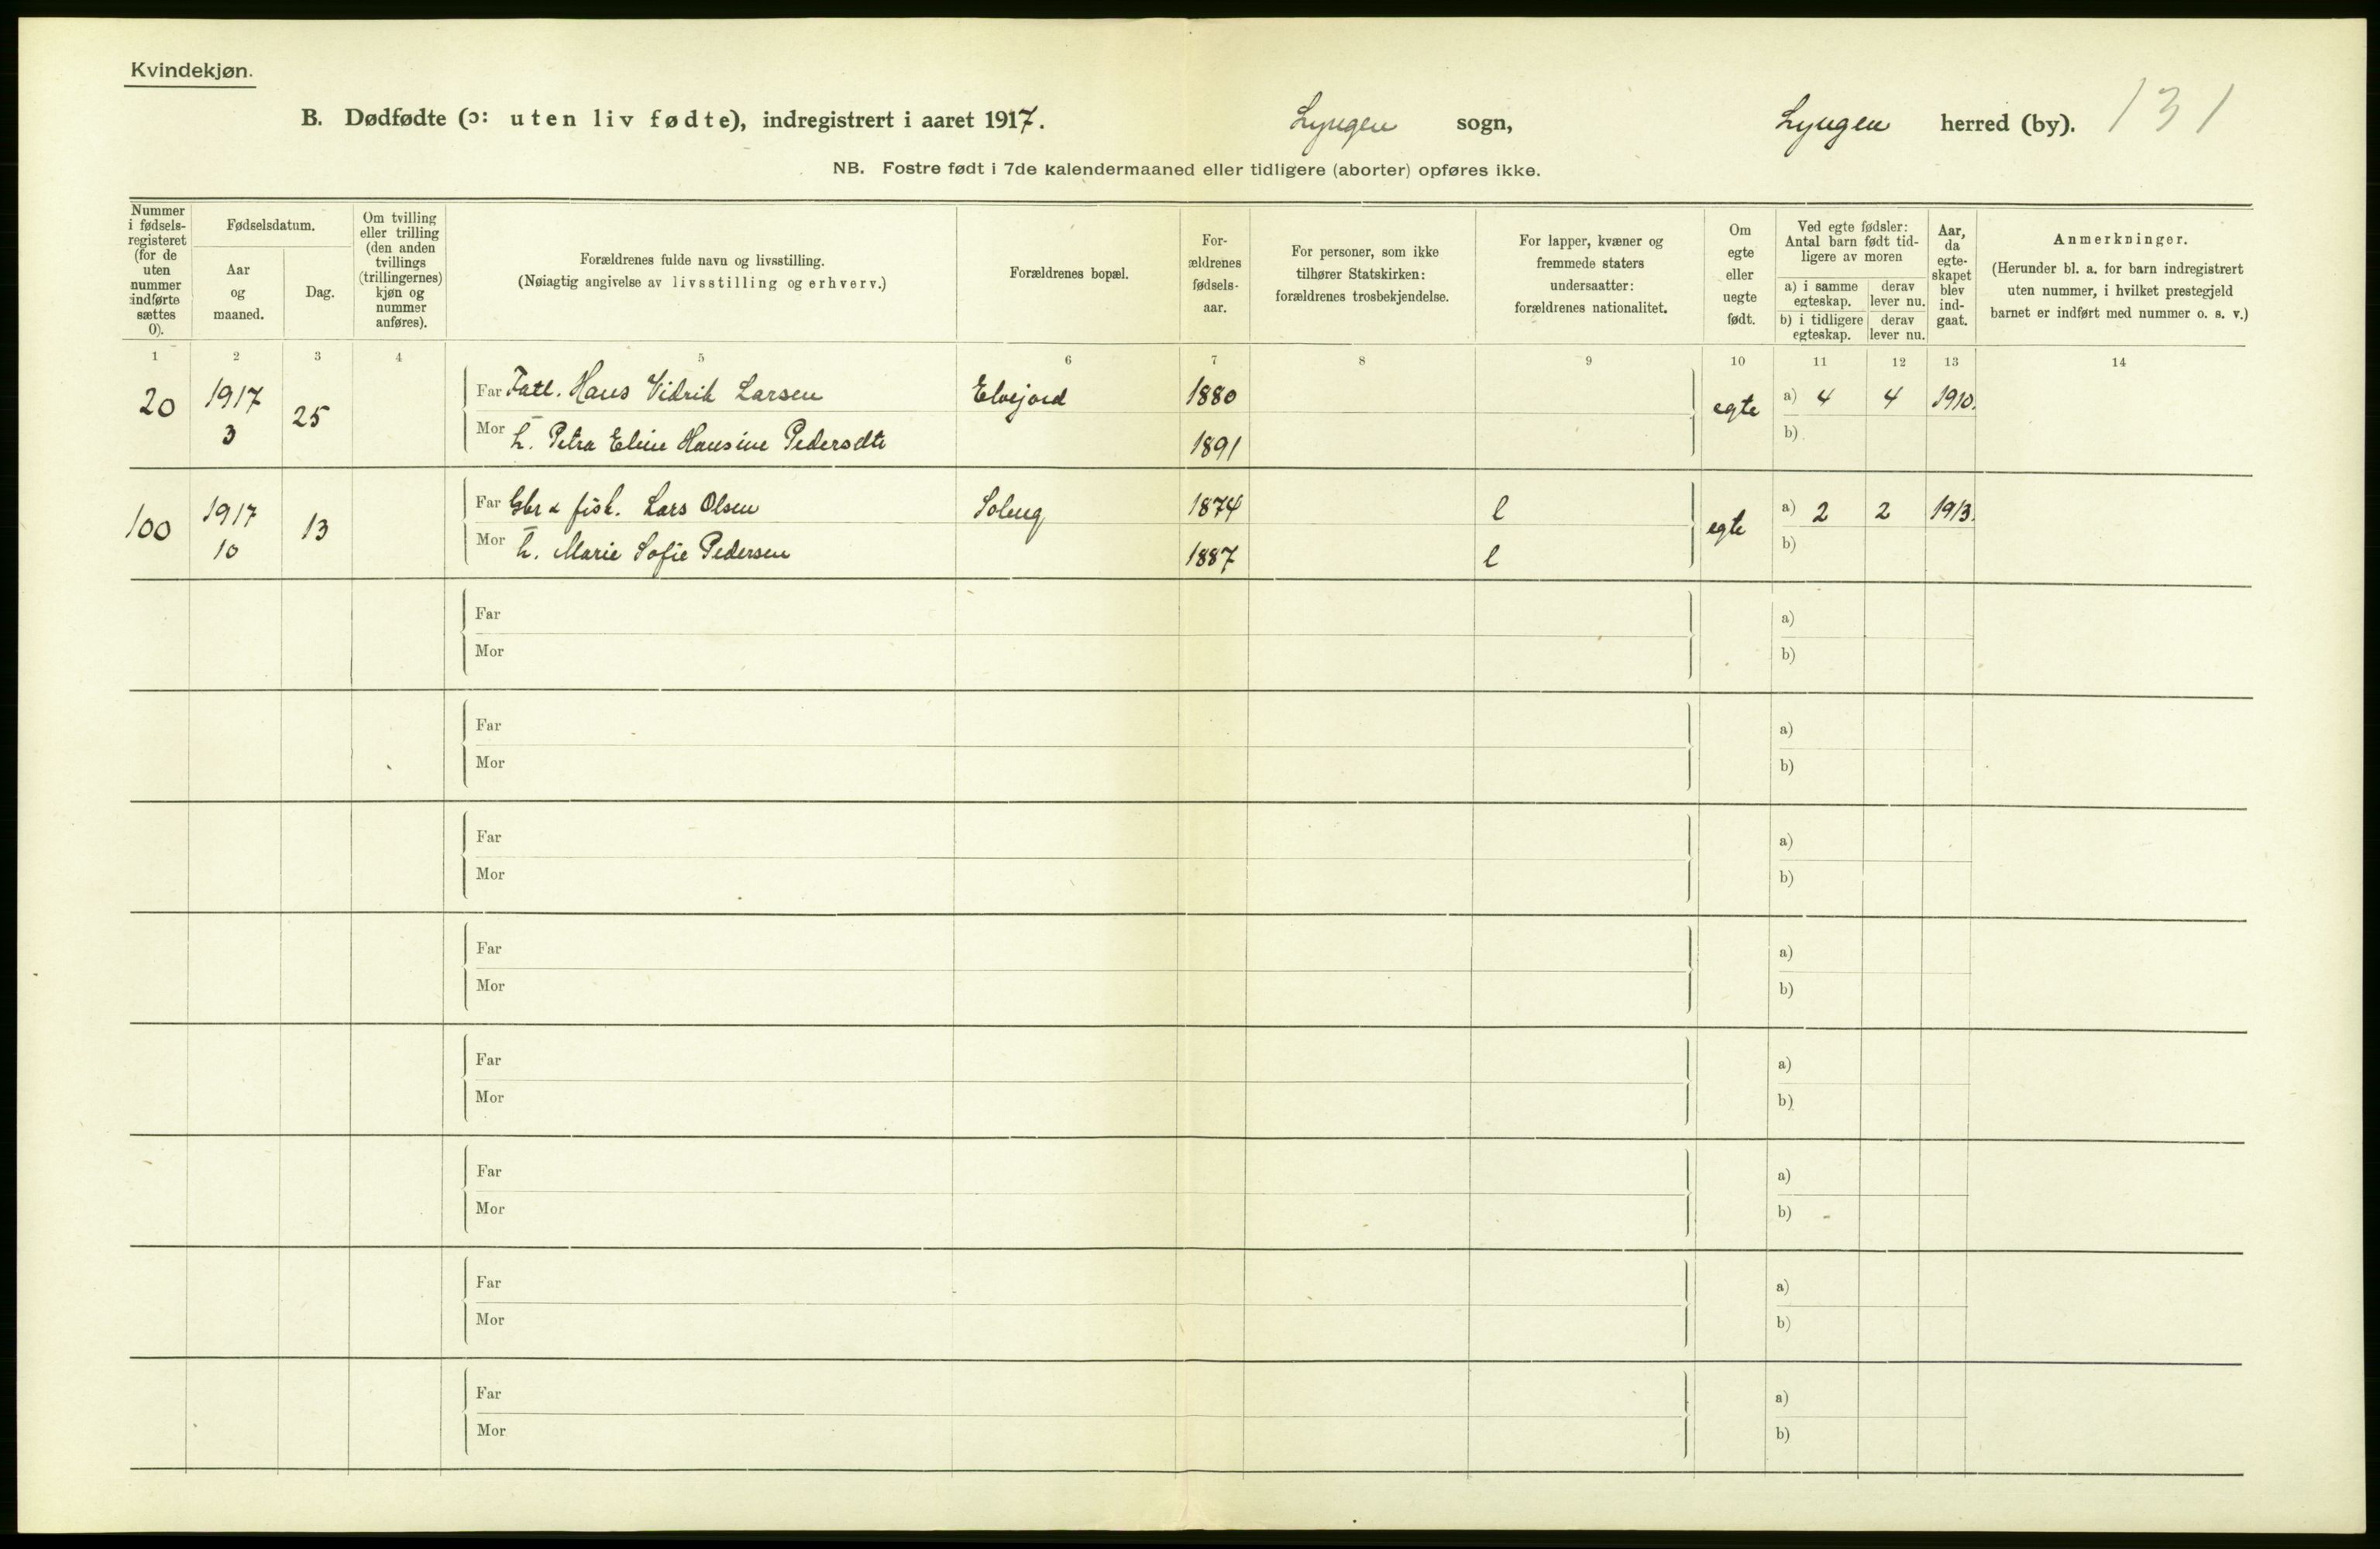 Kvindekjøn.
B. Dødfødte (ɔ: uten liv fødte), indregistrert i aaret 1917. Lyngen sogn, Lyngen herred (by). 131
NB. Fostre født i 7de kalendermaaned eller tidligere (aborter) opføres ikke.
Nummer
i fødsels-
registeret
(for de
uten
nummer
indførte
sættes
0).
Fødselsdatum.
Aar
og
maaned.
Dag.
Om tvilling
eller trilling
(den anden
tvillings
(trillingernes)
kjøn og
nummer
anføres).
Forældrenes fulde navn og livsstilling.
(Nøiagtig angivelse av livsstilling og erhverv.)
Forældrenes bopæl.
For-
ældrenes
fødsels-
aar.
For personer, som ikke
tilhører Statskirken:
forældrenes trosbekjendelse.
For lapper, kvæner og
fremmede staters
undersaatter:
forældrenes nationalitet.
Om
egte
eller
uegte
født.
Ved egte fødsler:
Antal barn født tid-
ligere av moren
a) i samme
egteskap.
derav
lever nu.
b) i tidligere
egteskap.
derav
lever nu.
Aar,
da
egte-
skapet
blev
ind-
gaat.
Anmerkninger.
(Herunder bl. a. for barn indregistrert
uten nummer, i hvilket prestegjeld
barnet er indført med nummer o. s. v.)
1 2 3 4 5 6 7 8 9 10 11 12 13 14
20 1917 3 25
Far Fatl. Hans Vidrik Larsen Elvejord 1880 egte a) 4 4 1910.
Mor h. Petra Eline Hansine Pedersdtr 1891 b)
100 1917 10 13
Far Gbr & fisk. Lars Olsen Soleng 1874 l egte a) 2 2 1913.
Mor h. Marie Sofie Pedersen 1887 l b)
Far a)
Mor b)
Far a)
Mor b)
Far a)
Mor b)
Far a)
Mor b)
Far a)
Mor b)
Far a)
Mor b)
Far a)
Mor b)
Far a)
Mor b)